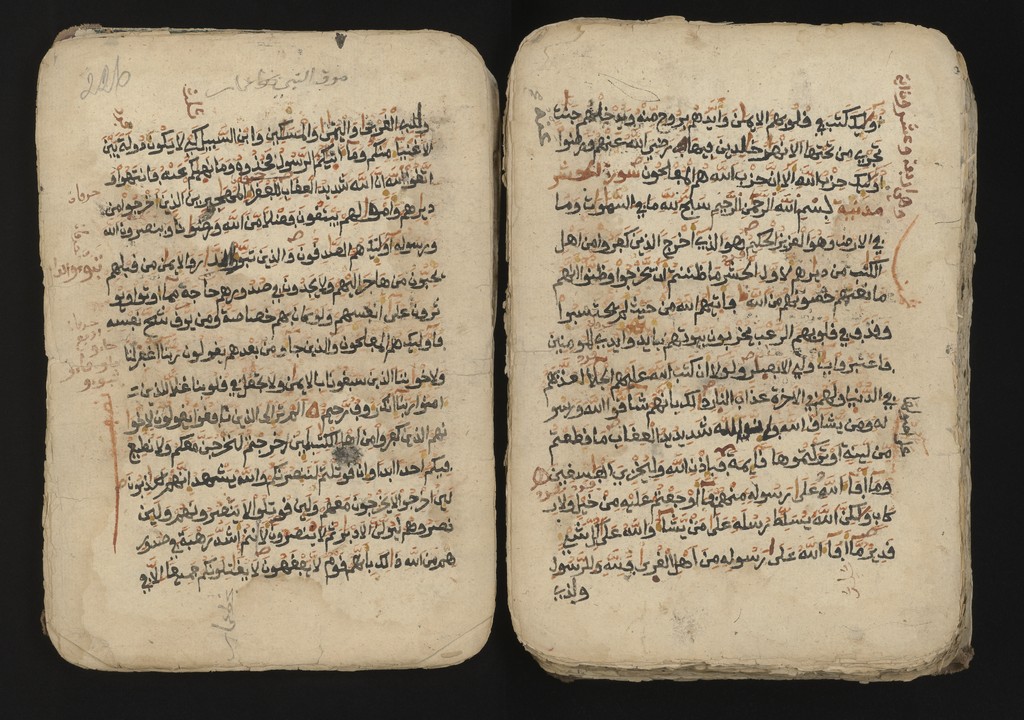 أوليك كتب في قلوبهم الايمن وأيدهم بروح منه ويدخلهم جنت
تجري من تحتها الانهر خلدين فيها رضي الله عنهم ورضوا
أوليك حزب الله ألا ان حزب الله هم المفلحون سورة الحشر
مدنية بسم الله الرحمن الرحيم سبح لله ما في السموات وما
في الارض وهو العزيز الحكيم هو الذي أخرج الذين كفروا من اهل
الكتب من ديرهم لاول الحشر ما ظننتم ان يخرجوا وظنوا انهم
ما نعتهم حصونهم من الله فاتيهم الله من حيث لم يحتسبوا
وقذف في قلوبهم الرعب يخربون بيوتهم بأيديهم وايدي المومنين
فاعتبروا يا ولي الابصر ولولا ان كتب الله عليهم الجلا لعذبهم
في الدنيا ولهم في الاخرة عذاب النار ذلك بانهم شاقوا الله ورسو
له ومن يشاق الله فان الله شديد العقاب ما قطعتم
من لينة أو تركتموها قايمة فبإذن الله وليخزي الفسقين
وما أفا الله على رسوله منهم فما أوجفتم عليه من خيل ولا ر
كاب ولكن الله يسلط رسله على من يشا والله على كل شي
قدير ما أفا الله على رسوله من أهل القرى فلله وللرسول
ولذي
ولذي القربى واليتمى والمسكين وابن السبيل كي لا يكون دولة بين
الاغنيا منكم وما اتيكم الرسول فخذوه وما نهيكم عنه فانتهوا و
اتقوا الله ان الله شديد العقاب للفقرا المهجرين الذين أخرجوا من
ديرهم وامولهم يبتغون فضلا من الله ورضونا وينصرون الله
ورسوله أوليك هم الصدقون والذين تبوءو الدار والايمن من قبلهم
يحبون من هاجر اليهم ولا يجدون في صدورهم حاجة مما اوتوا ويو
ثرون على انفسهم ولو كان بهم خصاصة ومن يوق شح نفسه
فأوليك هم المفلحون والذين جاو من بعدهم يقولون ربنا اغفر لنا
ولاخوننا الذين سبقونا بالايمن ولا تجعل في قلوبنا غلا للذين
امنوا ربنا انك روف رحيم ألم تر الى الذين نافقوا يقولون لاخو
نهم الذين كفروا من اهل الكتب لين أخرجتم لنخرجن معكم ولا نطيع
فيكم احدا ابدا وان قوتلتم لننصرنكم والله يشهد انهم لكذبون
لين اخرجوا لا يخرجون معهم ولين قوتلوا لا ينصرونهم ولين
نصروهم ليولن الادبر ثم لا ينصرون لأنتم أشد رهبة في صدور
هم من الله ذلك بأنهم قوم لا يفقهون لا يقتلونكم جميعا الا في